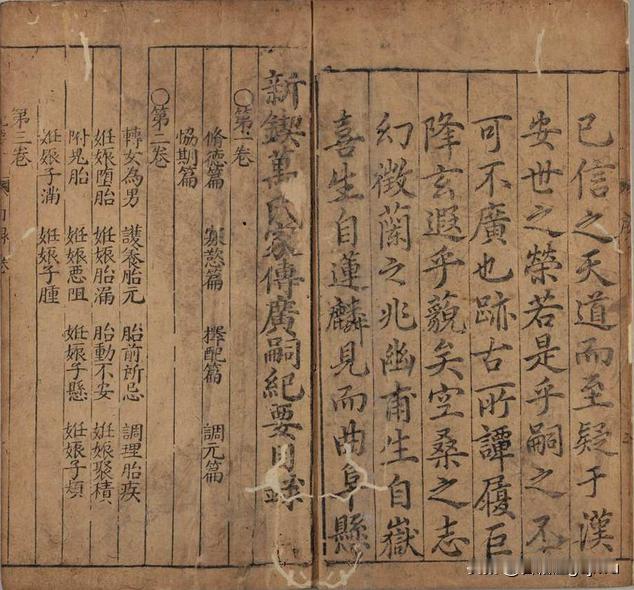 已信之天道而至疑于漢
安世之榮若是乎嗣之丕
可不廣也跡古所譚履巨
降玄遐乎藐矣空桑之志
幻徵蘭之兆幽甫生自嶽
喜生自蓮麟見而曲阜縣
新鍥萬氏家傳廣嗣紀要目錄
○第一卷
脩德篇 寡慾篇 擇配篇 調元篇
恊期篇
○第二卷
轉女為男 護養胎元 胎前所忌 調理胎疾
姙娠堕胎 姙娠胎漏 胎動不安 姙娠聚積
附鬼胎 姙娠惡阻 姙娠子懸 姙娠子煩
姙娠子滿 姙娠子腫
第三卷